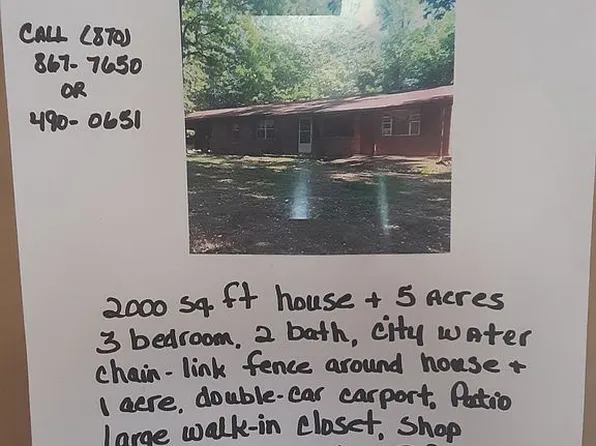 CALL (870)
867-7650
OR
490-0651
2000 sq ft house + 5 Acres
3 bedroom, 2 bath, city water
chain-link fence around house +
1 acre, double-car carport, Patio
large walk-in closet, shop